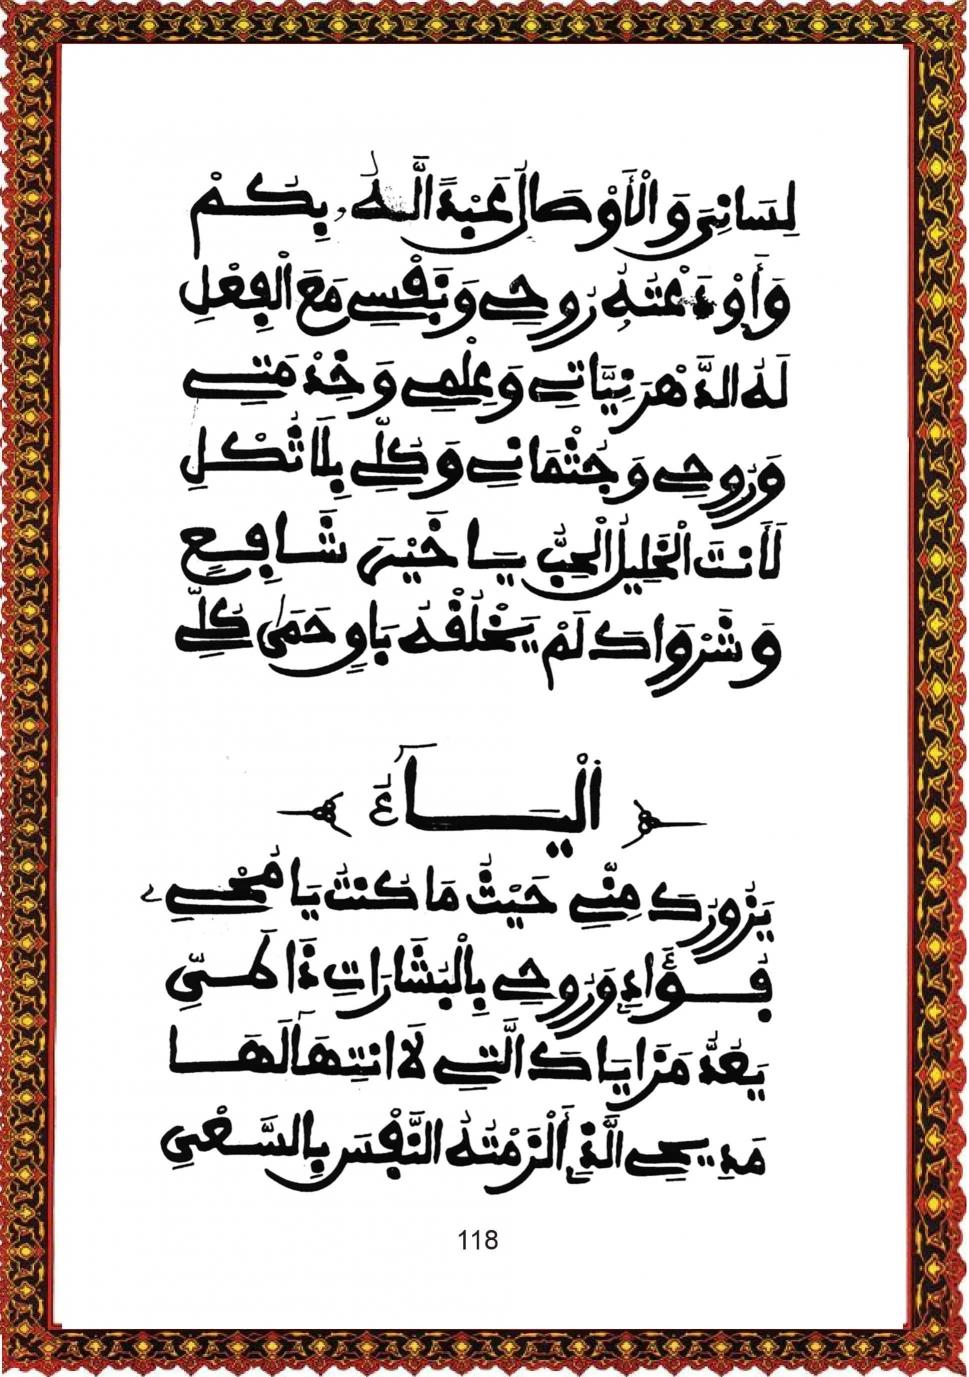 لِسَانِي وَالْأَوْصَالُ عَبْدٌ الَّهُ بِكُمْ
وَأَوْدَعْتُهُ رُوحِي وَنَفْسِي مَعَ الْفِعْلِ
لَهُ الدَّهْرَ نِيَّاتِي وَعِلْمِي وَخِدْمَتِي
وَرُوحِي وَجُثْمَانِي وَكُلِّي بِلَا ثُكْلِ
لَأَنتَ الْخَلِيلُ الْحِبُّ يَا خَيْرَ شَافِعٍ
وَشَرْوَاكَ لَمْ يَخْلُقْهُ بَاوٍ حَمَى كُلِّي
الْيَاءُ
يَزُورُكَ مِنِّي حَيْثُ مَا كُنتُ يَا مُحْيِي
فُؤَادِي وَرُوحِي بِالْبَشَارَاتِ ذَا
يَعُدُّ مَزَايَاكَ الَّتِي لَا انتِهَا لَهَا
مَدِيحِي الَّذِي أَلْزَمْتُهُ النَّفْسَ بِالسَّعْيِ
118